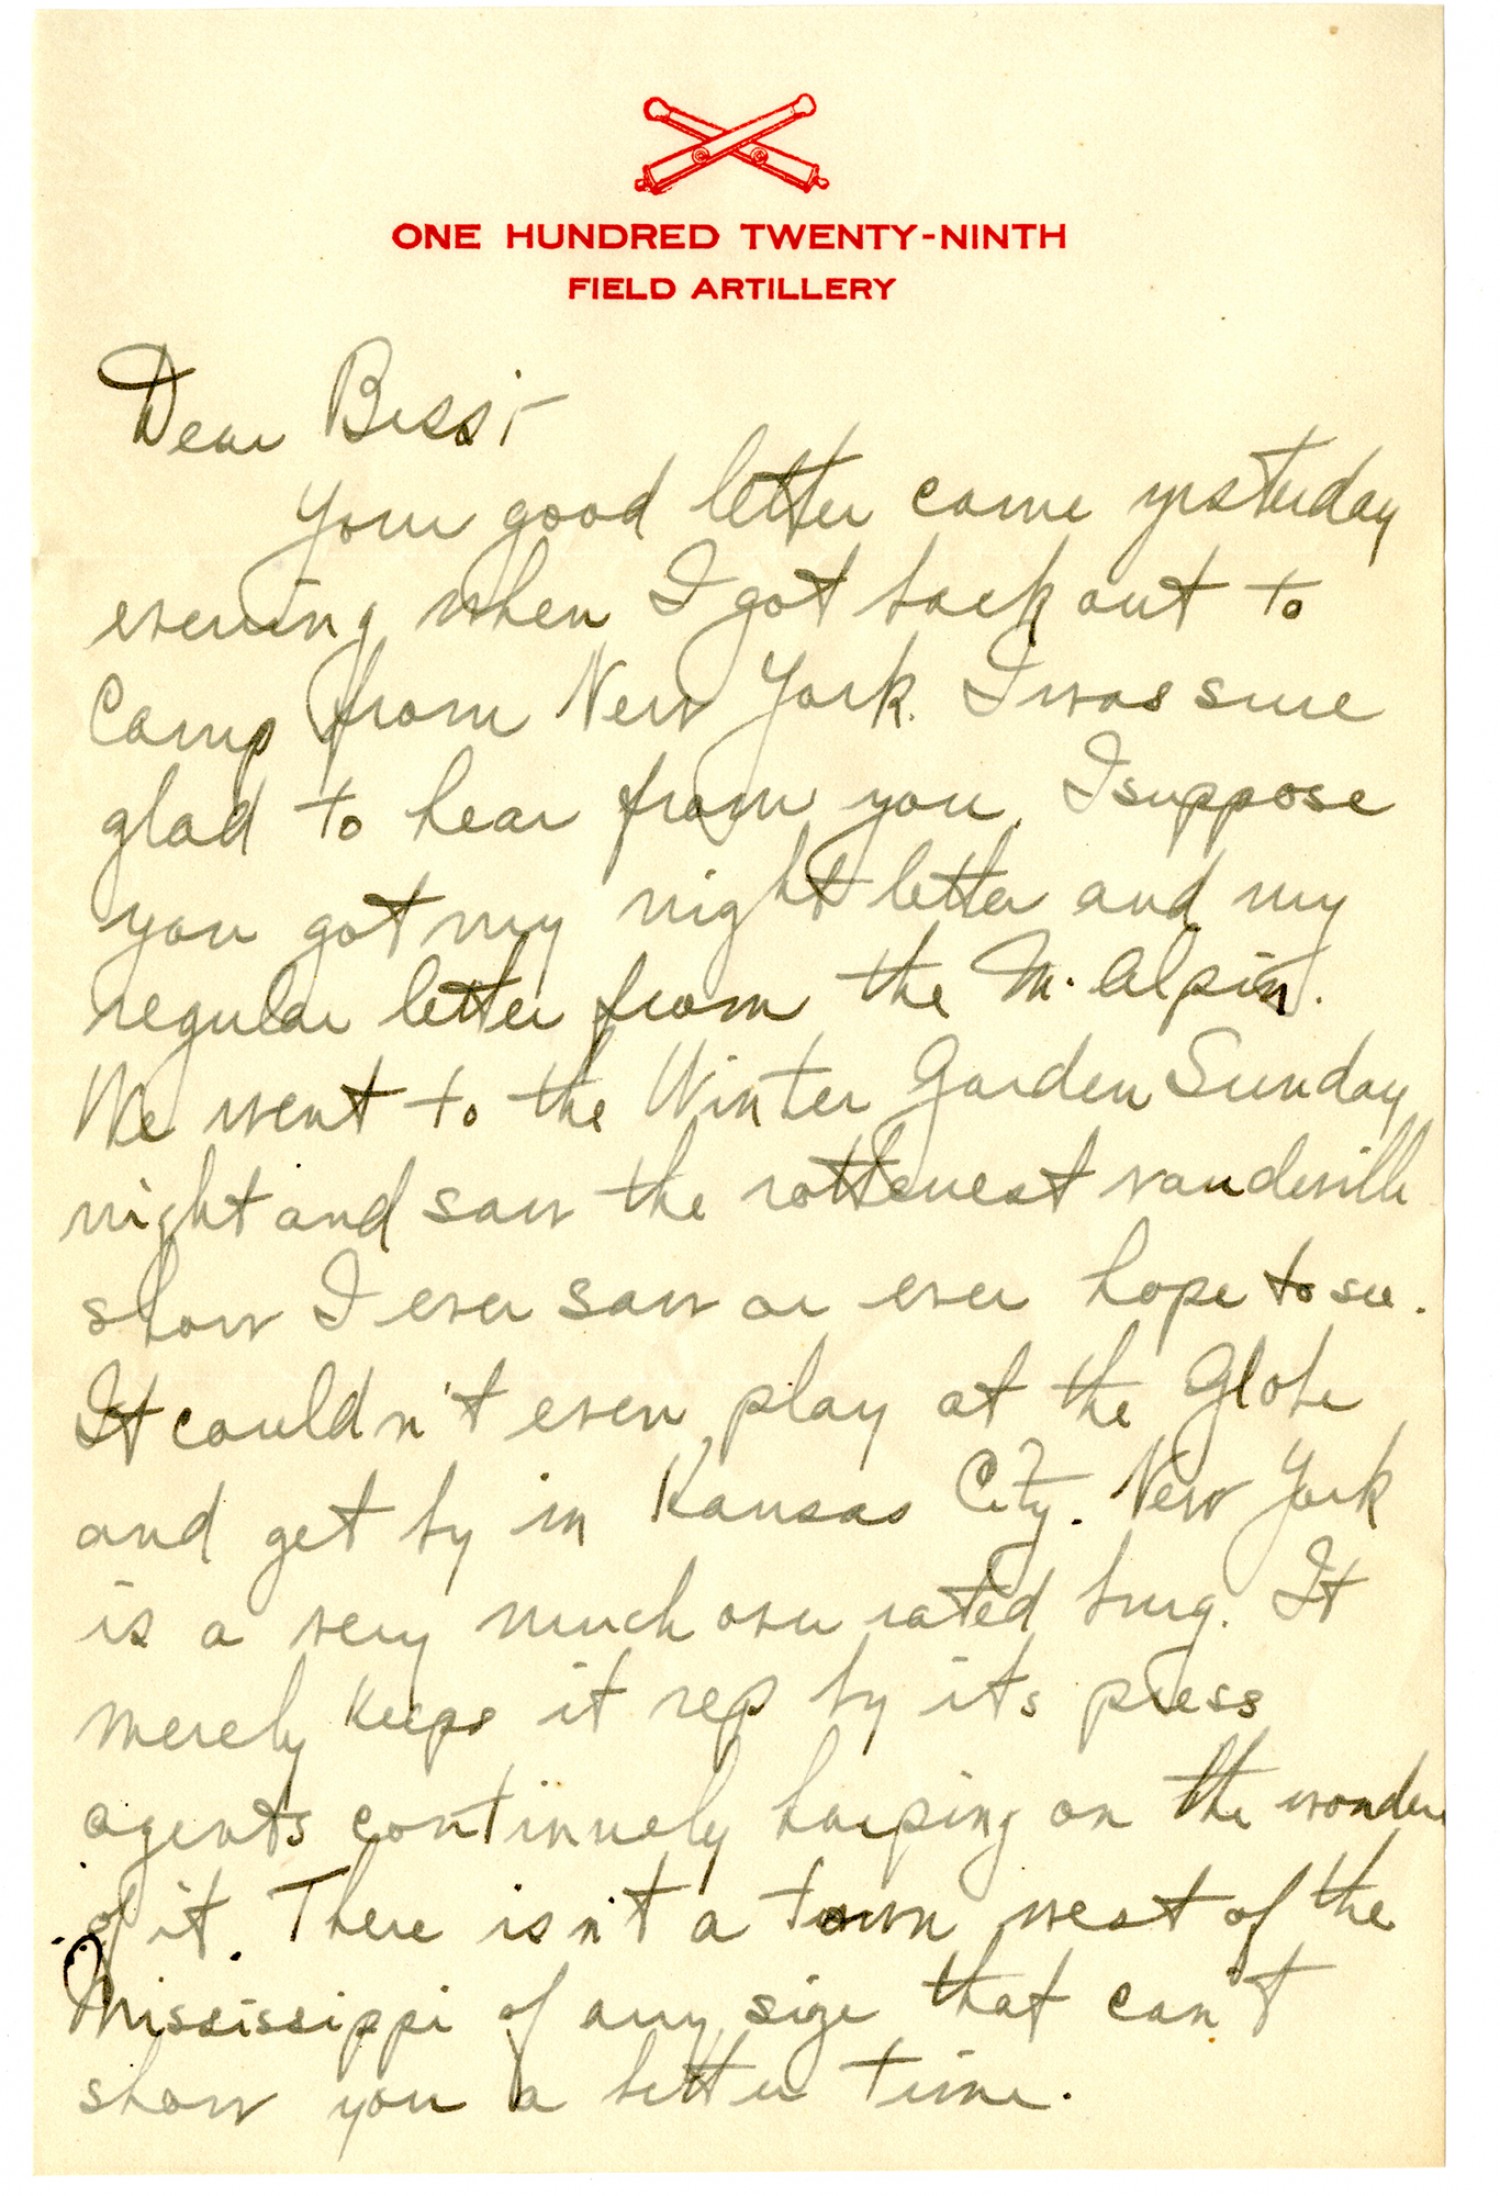 ONE HUNDRED TWENTY-NINTH
FIELD ARTILLERY
Dear Bess:-
Your good letter came yesterday
evening when I got back out to
Camp from New York. I was sure
glad to hear from you. I suppose
you got my night letter and my
regular letter from the McAlpin.
We went to the Winter Garden Sunday
night and saw the rottenest vaudeville
show I ever saw or ever hope to see.
It couldn't even play at the Globe
and get by in Kansas City. New York
is a very much over rated burg. It
merely keeps it rep by its press
agents continuely harping on the wonders
of it. There isn't a town west of the
Mississippi of any size that can't
show you a better time.